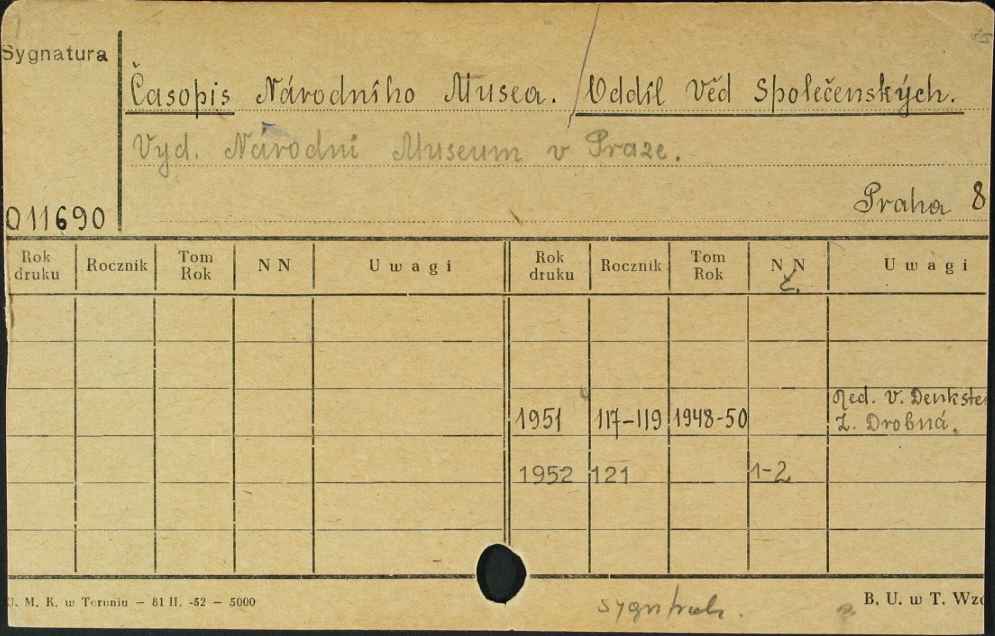 Sygnatura
Časopis Národního Musea. / Oddíl Věd Společenských.
Vyd. Národní Museum v Praze.
Praha 8
011690
Rok druku Rocznik Tom Rok NN Uwagi Rok druku Rocznik Tom Rok NN Uwagi
č.
Red. V. Denkste
1951 117-119 1948-50 Z. Drobná.
1952 121 1-2
J. M. K. w Toruniu — 81 II. -52 — 5000
B. U. w T. Wzó